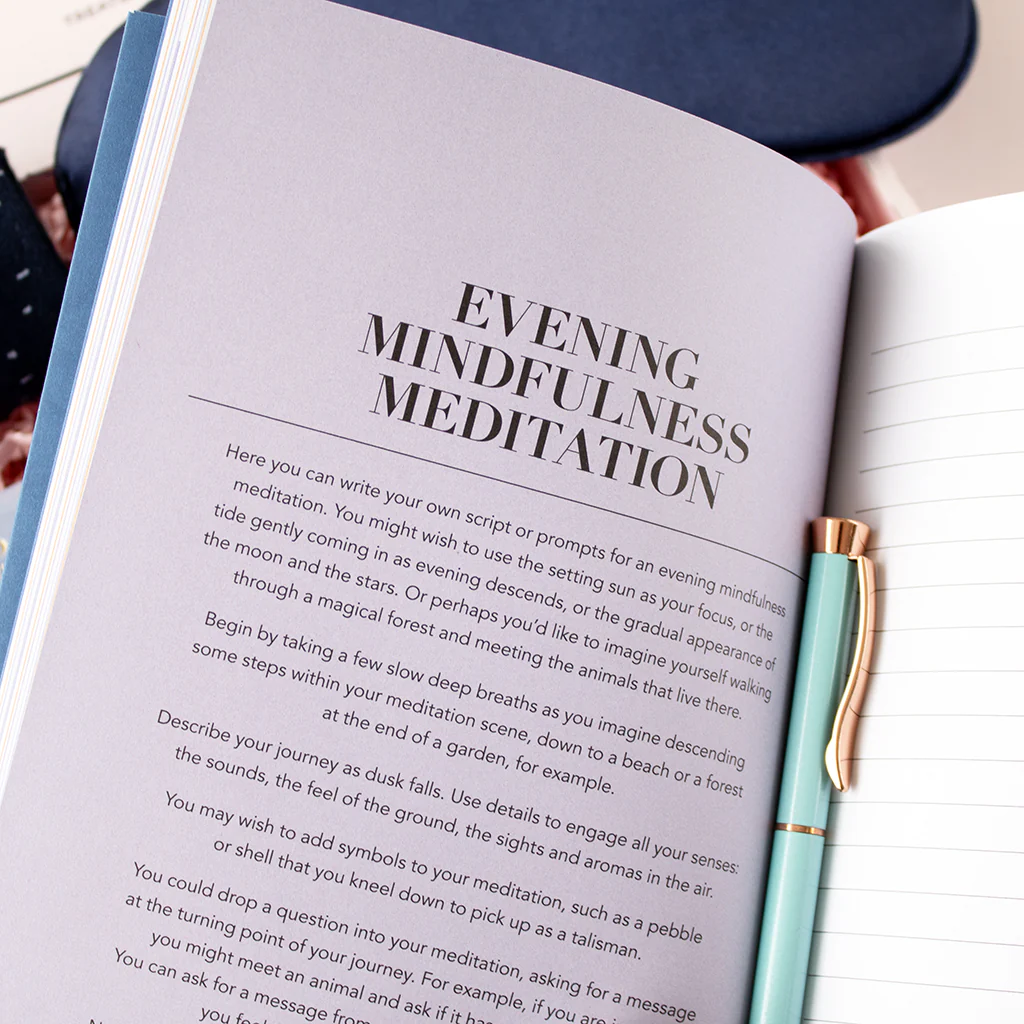 EVENING
MINDFULNESS
MEDITATION
Here you can write your own script or prompts for an evening mindfulness
meditation. You might wish to use the setting sun as your focus, or the
tide gently coming in as evening descends, or the gradual appearance of
the moon and the stars. Or perhaps you'd like to imagine yourself walking
through a magical forest and meeting the animals that live there.
Begin by taking a few slow deep breaths as you imagine descending
some steps within your meditation scene, down to a beach or a forest
at the end of a garden, for example.
Describe your journey as dusk falls. Use details to engage all your senses:
the sounds, the feel of the ground, the sights and aromas in the air.
You may wish to add symbols to your meditation, such as a pebble
or shell that you kneel down to pick up as a talisman.
You could drop a question into your meditation, asking for a message
at the turning point of your journey. For example, if you are
you might meet an animal and ask if it has
You can ask for a message from
you